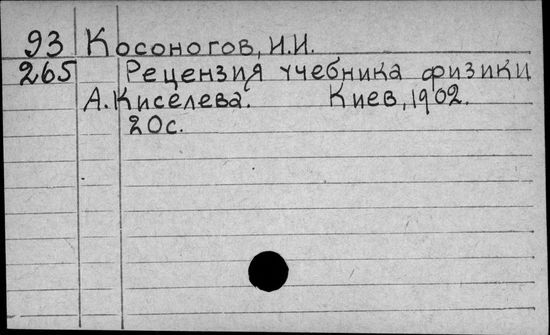 93 Косоногов, И.И.
265 Рецензия учебника физики
А. Киселева. Киев, 1902.
20с.